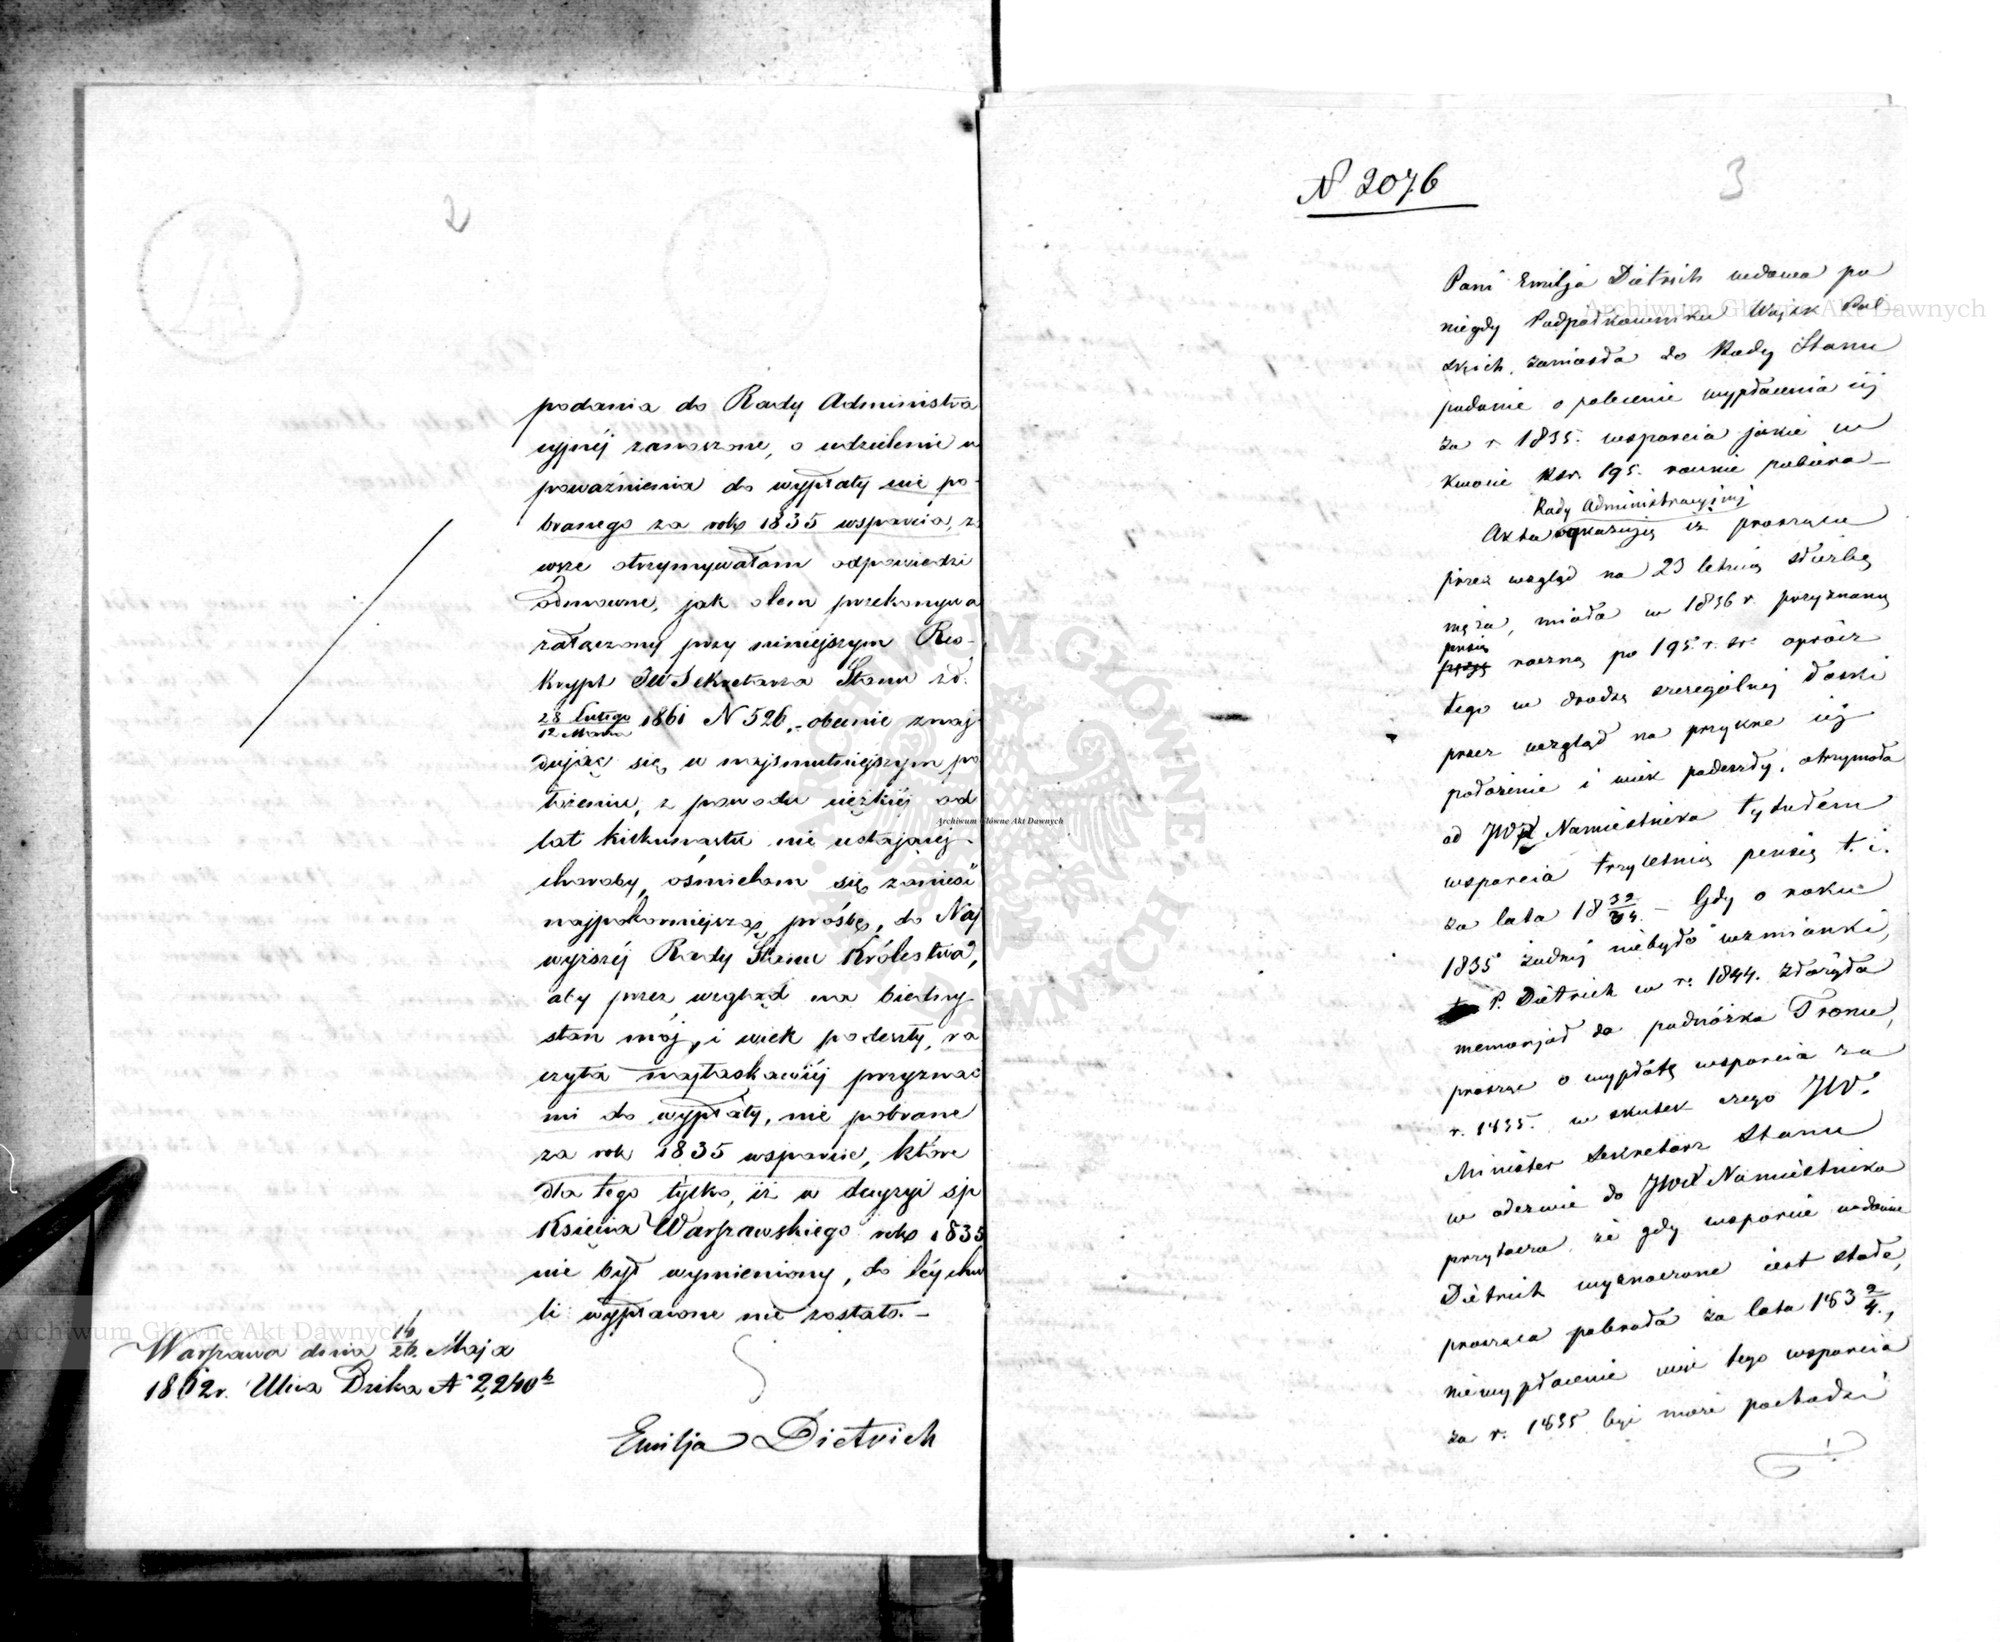 2
podania do Rady Administra
cyjnéj zanoszone, o udzielenie u
poważnienia do wypłaty nie po-
branego za rok 1835 wsparcia, za
wsze otrzymywałam odpowiedzi
odmowne, jak o tem przekonywa
załączony przy niniejszym Res-
krypt JW Sekretarza Stanu zd.
28 Lutego
12 Marca 1861 N 526, obecnie znaj
dując się w najsmutniejszym po
łożeniu, z powodu ciężkiéj od
lat kilkunastu nie ustającéj
choroby, ośmielam się zanieść
najpokorniejszą prośbę, do Naj
wyższéj Rady Stanu Królestwa,
aby przez wzgląd na biedny
stan mój, i wiek podeszły, ra
czyła najłaskawiéj przyznać
mi do wypłaty, nie pobrane
za rok 1835 wsparcie, które
dla tego tylko, iż w decyzyi śp
Księcia Warszawskiego rok 1835
nie był wymieniony, do téj chwi
li wypłacone nie zostało.—
Warszawa dnia 16/28 Maja
1862 r. Ulica Dzika N 2,240 b
Emilja Dietrich
N 2076
3
Pani Emilja Dietrich wdowa po
niegdy Podpółkowniku Wojsk Pol
skich, zaniosła do Rady Stanu
podanie o polecenie wypłacenia jéj
za r. 1835. wsparcia jakie w
kwocie Rsr. 195. rocznie pobiera—
Rady Administracyjnéj
Akta okazują iż prosząca
przez wzgląd na 23 letnią służbę
męża, miała w 1836 r. przyznaną
pensią
roczną po 195. r. sr. oprócz
tego w drodze szczególnéj łaski
przez wzgląd na przykre jéj
położenie i wiek podeszły, otrzymała
od JW Namiestnika tytułem
wsparcia trzyletnią pensią t. i.
za lata 18 32/34. — Gdy o roku
1835 żadnéj niebyło wzmianki,
P. Dietrich w r. 1844. złożyła
memorjał do podnóżka Tronu,
prosząc o wypłatę wsparcia za
r. 1835. w skutek czego JW.
Minister Sekretarz Stanu
w odezwie do JW Namiestnika
przytacza że gdy wsparcie wdowie
Dietrich wyznaczone jest stałe,
prosząca pobrała za lata 183 2/4.,
niewypłacenie więc tego wsparcia
za r. 1835 być może pochodzi
Archiwum Główne Akt Dawnych
Archiwum Główne Akt Dawnych
Archiwum Główne Akt Dawnych